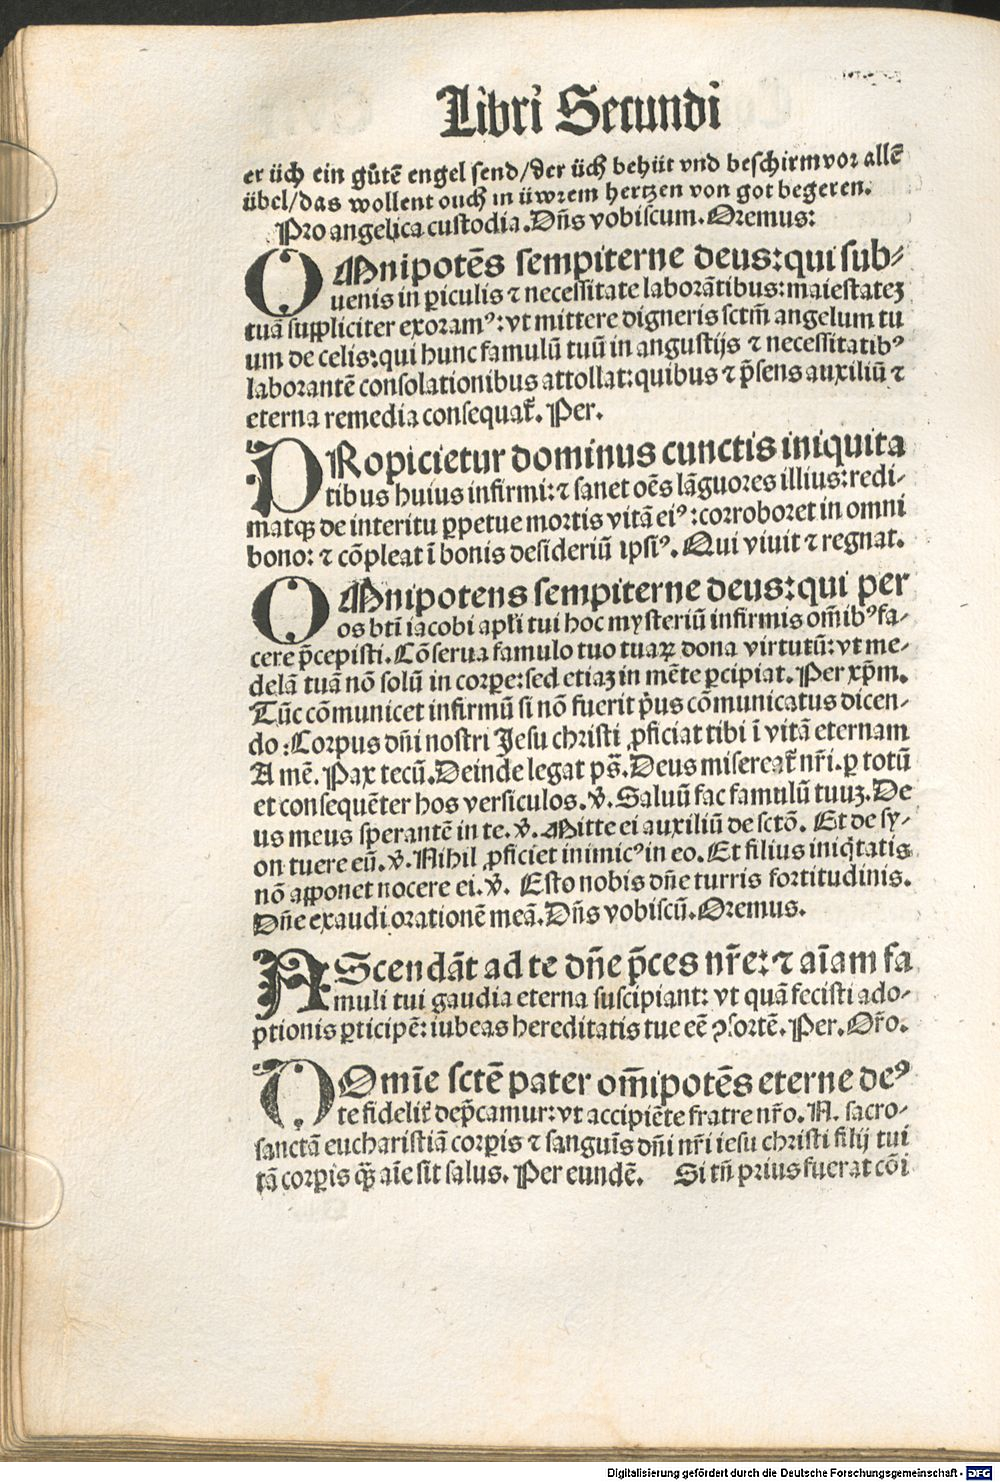 Libri Secundi
er üch ein gůtē engel send/der üch behüt vnd beschirm vor allē
übel/das wollent ouch in üwrem hertzen von got begeren.
Pro angelica custodia. Dn̄s vobiscum. Oremus:
OMnipotēs sempiterne deus: qui sub⸗
uenis in ꝑiculis ⁊ necessitate laborātibus: maiestatez
tuā suppliciter exoramꝰ: vt mittere digneris sctm̄ angelum tu
um de celis: qui hunc famulū tuū in angustijs ⁊ necessitatibꝰ
laborantē consolationibus attollat: quibus ⁊ p̄sens auxiliū ⁊
eterna remedia consequat̄. Per.
PRopicietur dominus cunctis iniquita
tibus huius infirmi: ⁊ sanet oēs lāguores illius: redi⸗
matqꝫ de interitu ꝑpetue mortis vitā eiꝰ: corroboret in omni
bono: ⁊ cōpleat ī bonis desideriū ipsiꝰ. Qui viuit ⁊ regnat.
OMnipotens sempiterne deus: qui per
os btī iacobi apl̄i tui hoc mysteriū infirmis om̄ibꝰ fa⸗
cere p̄cepisti. Cōserua famulo tuo tuaꝝ dona virtutū: vt me⸗
delā tuā nō solū in corꝑe: sed etiaz in mēte ꝑcipiat. Per xp̄m.
Tūc cōmunicet infirmū si nō fuerit p̄us cōmunicatus dicen⸗
do: Corpus dn̄i nostri Jesu christi ꝓficiat tibi ī vitā eternam
Amē. Pax tecū. Deinde legat ps̄. Deus misereat̄ nr̄i. ꝑ totū
et consequēter hos versiculos. v̄. Saluū fac famulū tuuz. De
us meus sperantē in te. v̄. Mitte ei auxiliū de sctō. Et de sy⸗
on tuere eū. v̄. Nihil ꝓficiet inimicꝰ in eo. Et filius iniq̇tatis
nō apponet nocere ei. v̄. Esto nobis dn̄e turris fortitudinis.
Dn̄e exaudi orationē meā. Dn̄s vobiscū. Oremus.
AScendāt ad te dn̄e p̄ces nr̄e: ⁊ aīam fa
muli tui gaudia eterna suscipiant: vt quā fecisti ado⸗
ptionis ꝑticipē: iubeas hereditatis tue eē ꝯsortē. Per. Or̄o.
DOmīe sctē pater om̄ipotēs eterne deꝰ
te fidelit̄ dep̄camur: vt accipiēte fratre nr̄o. N. sacro⸗
sanctā eucharistiā corꝑis ⁊ sanguīs dn̄i nr̄i iesu christi filij tui
tā corꝑis qꝫ̄ aīe sit salus. Per eundē. Si tn̄ prius fuerat cōi
Digitalisierung gefördert durch die Deutsche Forschungsgemeinschaft - DFG